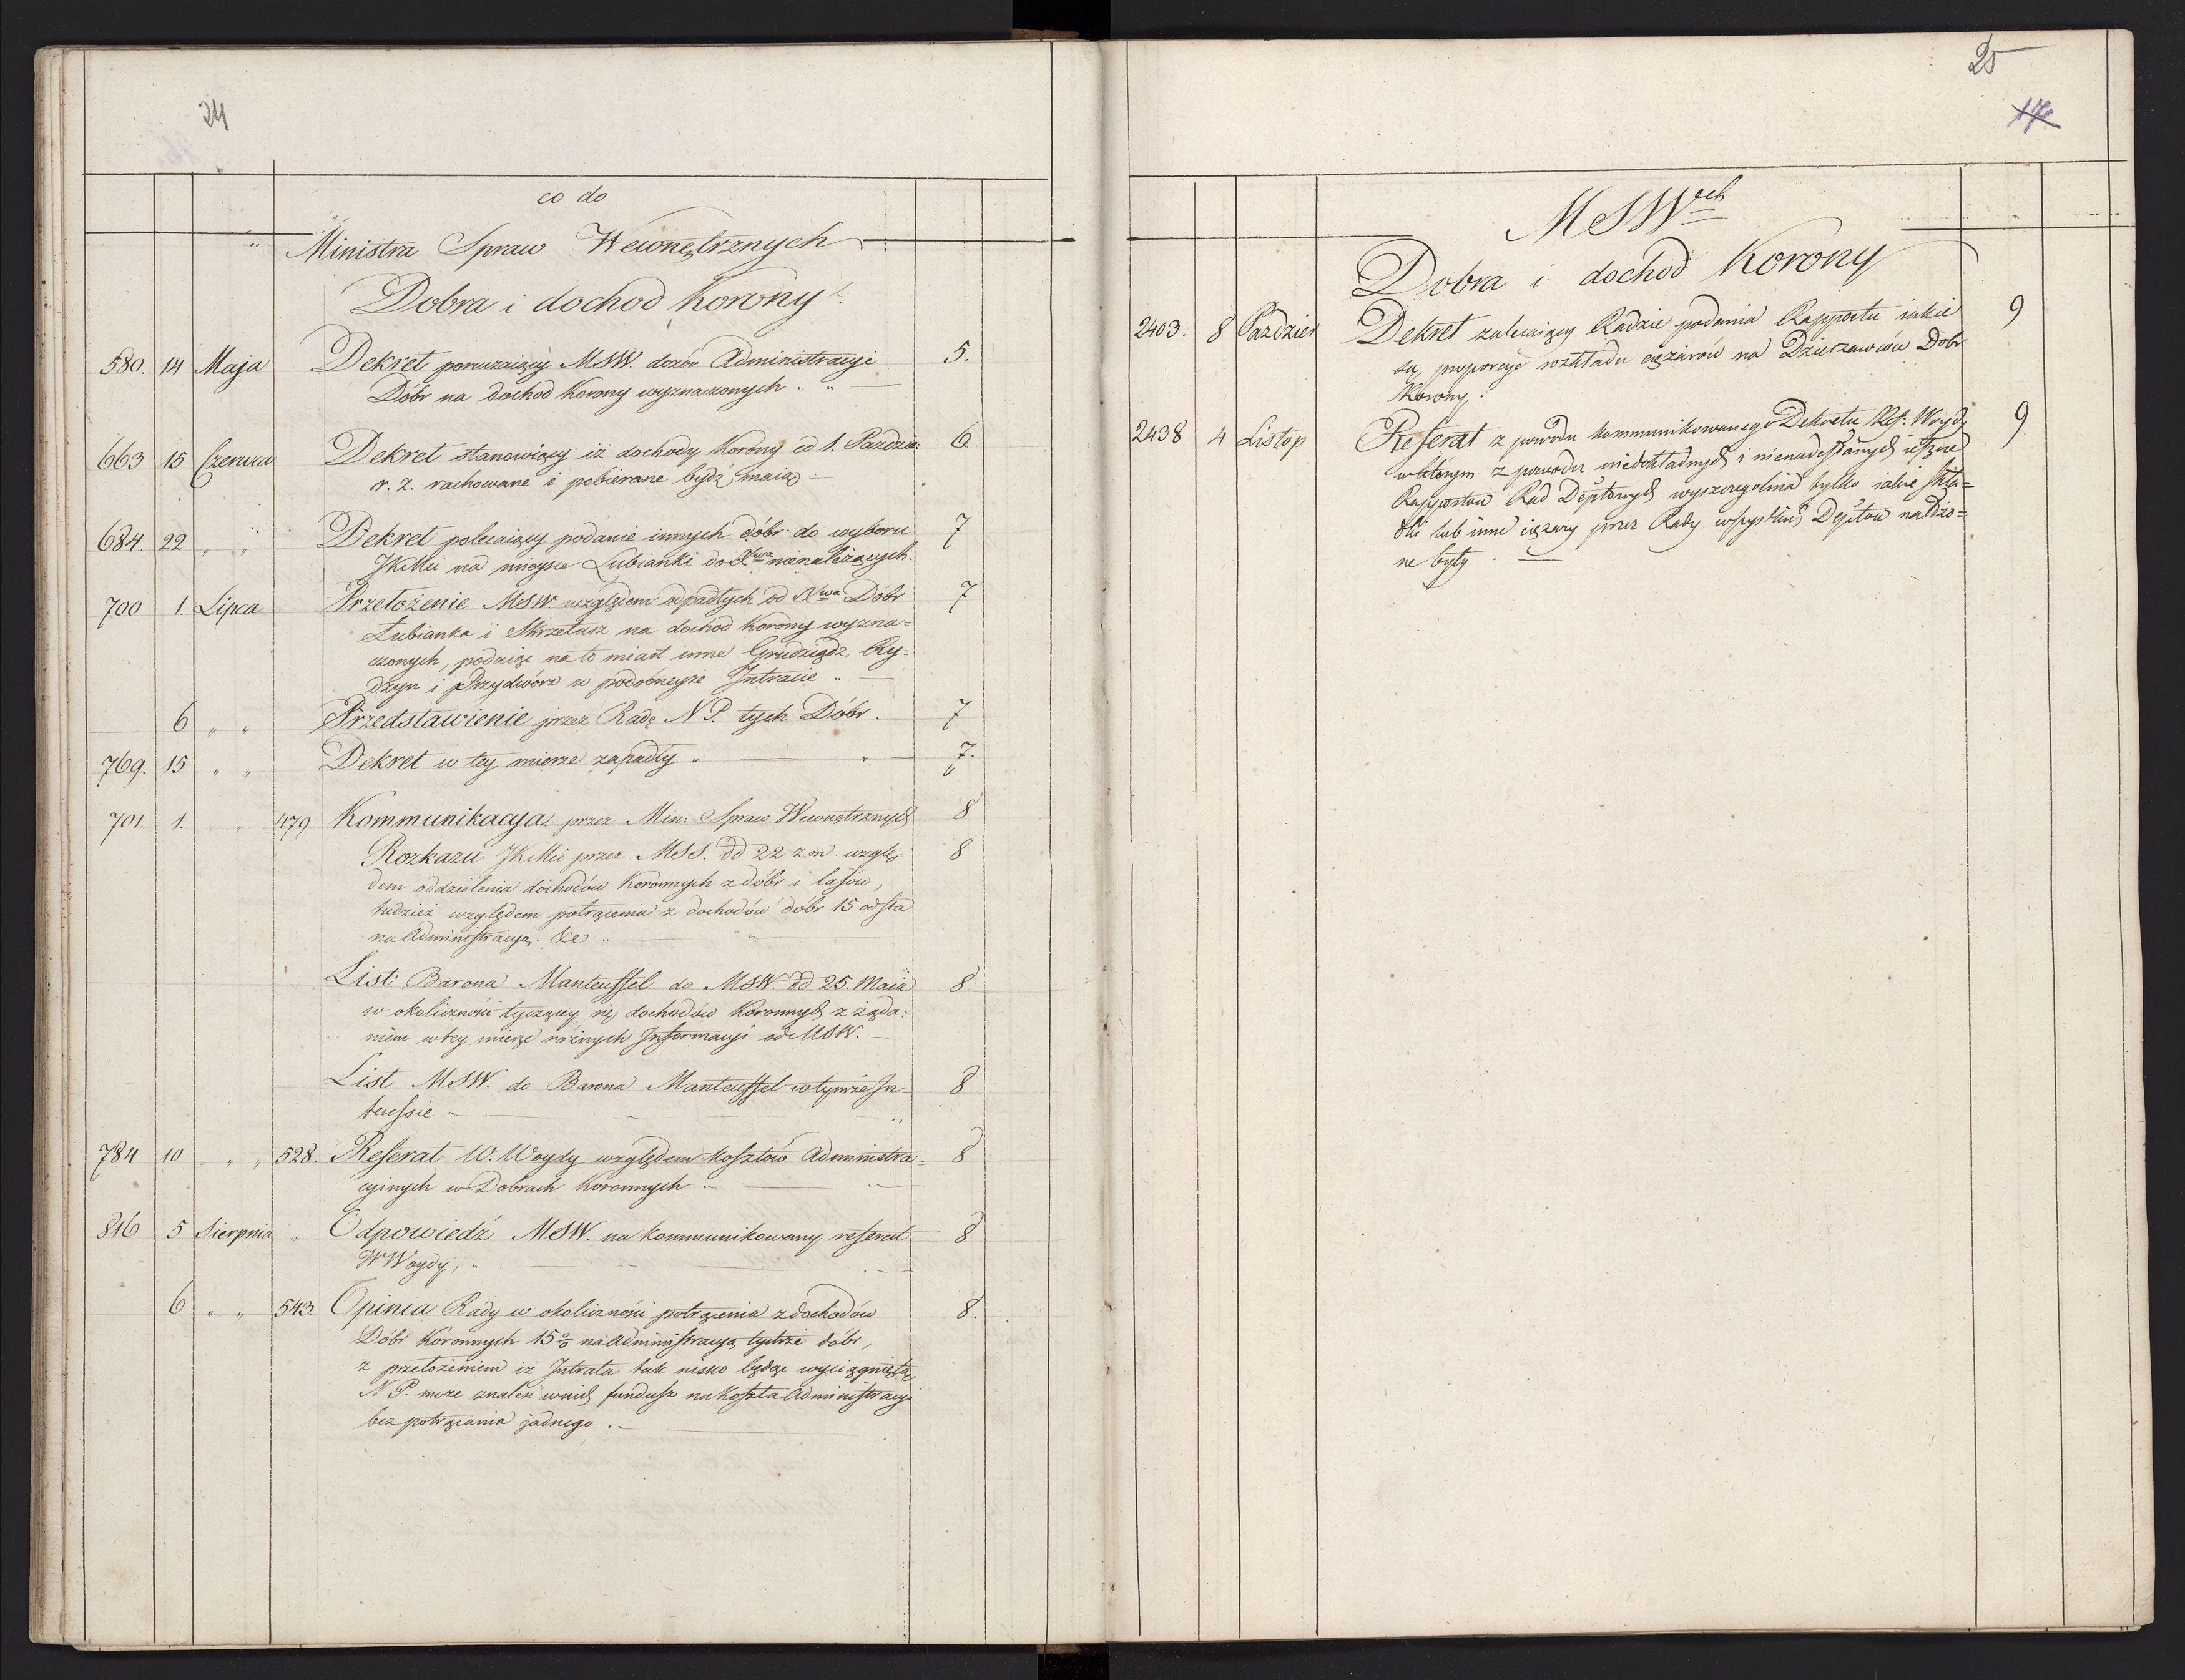 24
co do
Ministra Spraw Wewnętrznych
Dobra i dochod Korony
580. 14 Maja Dekret poruczaiący MSW. dozór Administracyi 5.
Dóbr na dochod Korony wyznaczonych
663 15 Czerwca Dekret stanowiący iż dochody Korony od 1. Pazdzier: 6.
r. z. rachowane i pobierane bydź maią
684. 22 " " Dekret polecaiący podanie innych dóbr do wyboru 7
JKMci na mieysce Lubianki do Xwa nienależących.
700 1. Lipca Przełożenie MSW. względem odpadłych od Xwa Dóbr 7
Łubianka i Skrzetusz na dochod Korony wyzna=
czonych, podaiąc na to miast inne Grudziądz, Ry=
dzyn i Przydwórz w podobneyże Intracie
6 " " Przedstawienie przez Radę N P. tych Dóbr. 7
769. 15 " " Dekret w tey mierze zapadły 7.
701. 1. 479 Kommunikacya przez Min: Spraw Wewnętrznych 8
Rozkazu JKMci przez MSS. dd 22 z. m. wzglę= 8
dem oddzielenia dochodów Koronnych z dóbr i lasów,
tudzież względem potrącenia z dochodów dóbr 15 od sta
na Administracyą. &c
List Barona Manteuffel do MSW. dd 25. Maia 8
w okoliczności tyczącey się dochodów Koronnych z żąda=
niem w tey mierze różnych Informacyi od MSW.
List MSW. do Barona Manteuffel w tymże In= 8
teressie
784 10 " " 528. Referat W. Woydy względem kosztów Administra= 8
cyinych w Dobrach Koronnych
816 5 Sierpnia " Odpowiedź MSW. na kommunikowany referat 8
W Woydy,
6 " " 543. Opinia Rady w okoliczności potrącenia z dochodów 8.
Dóbr Koronnych 15 % na Administracyą tychże dóbr,
z przełożeniem iż Intrata tak nisko będąc wyciągnięta
N P. może znaleść w nich fundusz na koszta Administracyi
bez potrącania żadnego.
25
17
MSWch
Dobra i dochod Korony
2403. 8 Pazdzier Dekret zalecaiący Radzie podania Rapportu iakie 9
są proporcye rozkładu ciężarów na Dzierzawców Dobr
Korony.
2438 4 Listop Referat z powodu kommunikowanego Dekretu Ref: Woydy 9
w którym z powodu niedokładnych i nienadesłanych ieszcze
Rapportów Rad Deptowych wyszczegolnia tylko iakie skła=
dki lub inne ciężary przez Rady wszystkich Deptow nałożo=
ne były